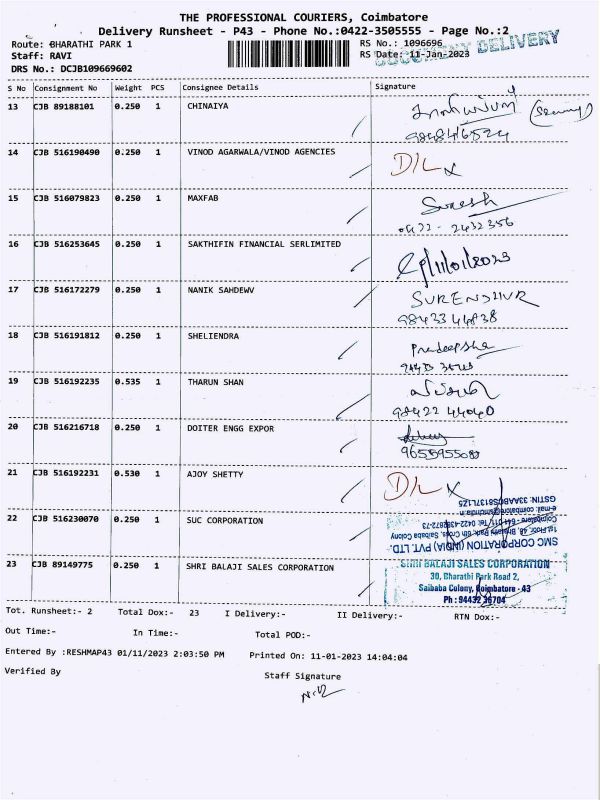 THE PROFESSIONAL COURIERS, Coimbatore
Delivery Runsheet - P43 - Phone No.:0422-3505555 - Page No.:2
Route: BHARATHI PARK 1
RS No.: 1096696
DOCUMENT DELIVERY
Staff: RAVI
RS Date: 11-Jan-2023
DRS No.: DCJB109669602
S No Consignment No Weight PCS Consignee Details Signature
13 CJB 89188101 0.250 1 CHINAIYA
14 CJB 516190490 0.250 1 VINOD AGARWALA/VINOD AGENCIES D/L x
15 CJB 516079823 0.250 1 MAXFAB Suresh
0422 - 2432356
16 CJB 516253645 0.250 1 SAKTHIFIN FINANCIAL SERLIMITED 11/01/2023
17 CJB 516172279 0.250 1 NANIK SAHDEWV
98433 44838
18 CJB 516191812 0.250 1 SHELIENDRA
19 CJB 516192235 0.535 1 THARUN SHAN
98422 44040
20 CJB 516216718 0.250 1 DOITER ENGG EXPOR
21 CJB 516192231 0.530 1 AJOY SHETTY D/L x
22 CJB 516230070 0.250 1 SUC CORPORATION
SMC CORPORATION (INDIA) PVT. LTD.
23 CJB 89149775 0.250 1 SHRI BALAJI SALES CORPORATION
SHRI BALAJI SALES CORPORATION
30, Bharathi Park Road 2,
Saibaba Colony, Coimbatore - 43
Tot. Runsheet:- 2 Total Dox:- 23 I Delivery:- II Delivery:- RTN Dox:-
Out Time:- In Time:- Total POD:-
Entered By :RESHMAP43 01/11/2023 2:03:50 PM Printed On: 11-01-2023 14:04:04
Verified By
Staff Signature